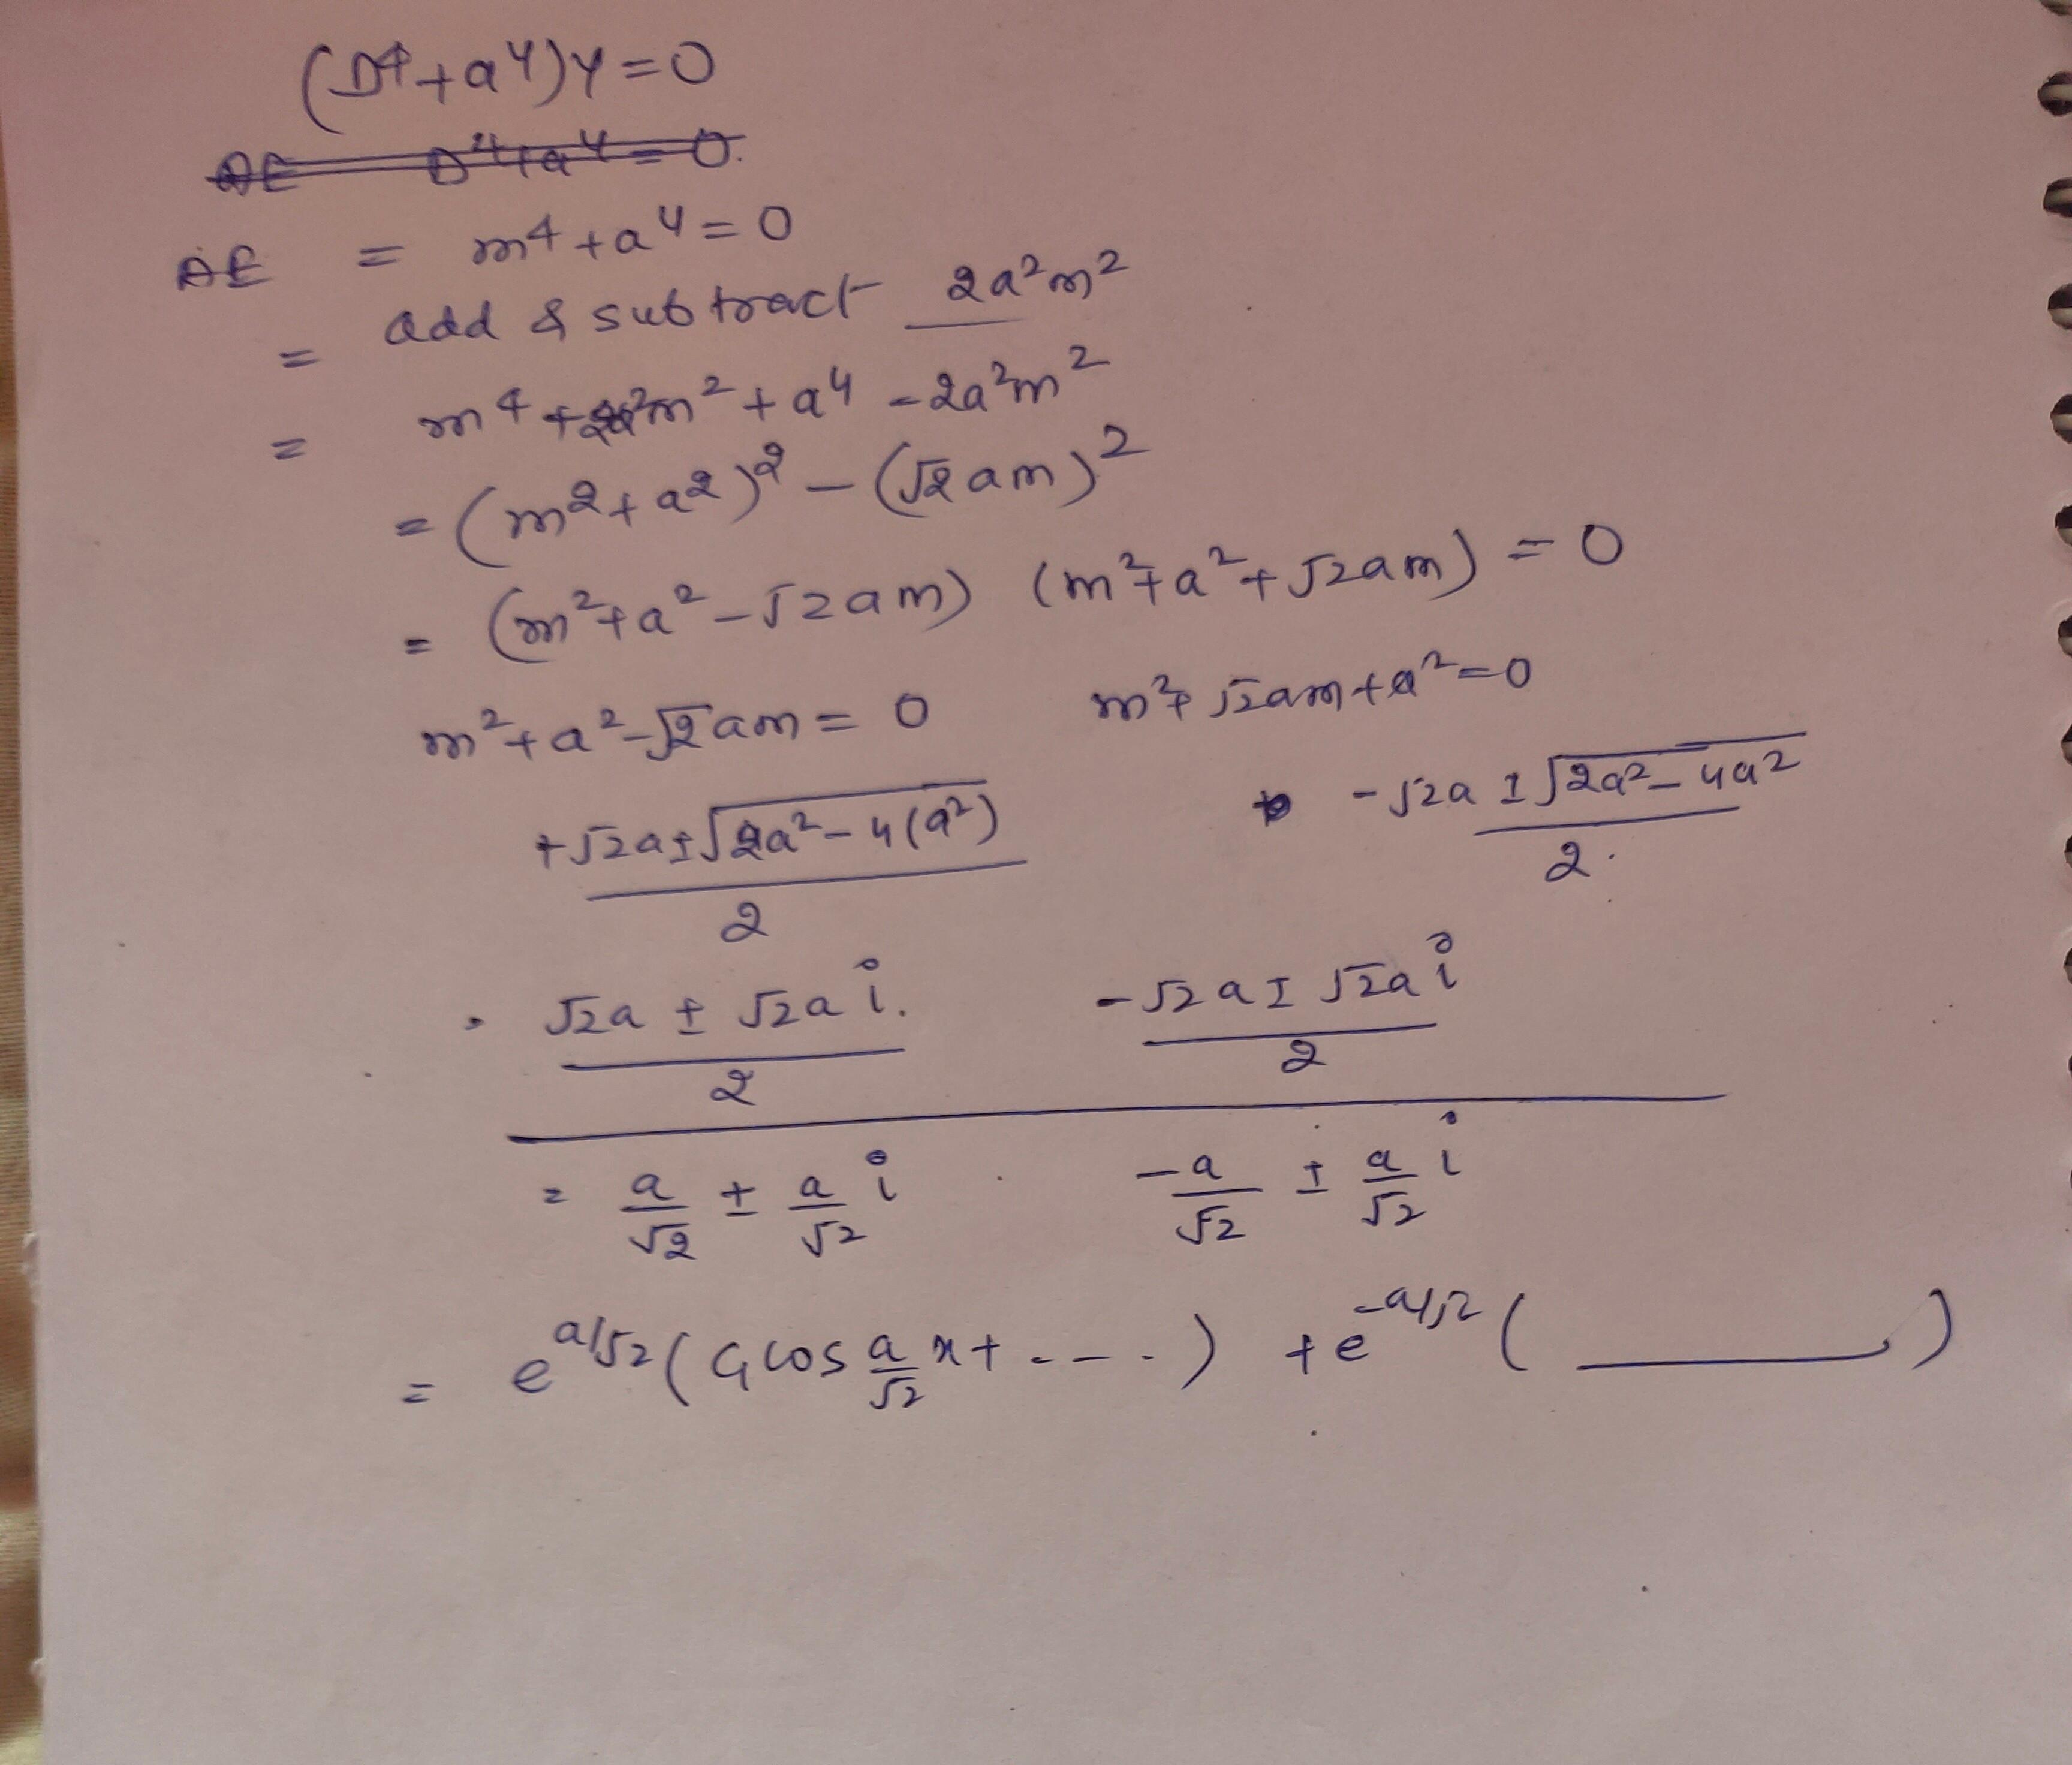 (D⁴+a⁴)y=0
AE D⁴+a⁴=0.
AE = m⁴+a⁴=0
= add & subtract 2a²m²
= m⁴+2a²m²+a⁴-2a²m²
=(m²+a²)²-(√2am)²
= (m²+a²-√2am) (m²+a²+√2am)=0
m²+a²-√2am=0 m²+√2am+a²=0
+√2a±√2a²-4(a²) / 2 -√2a±√2a²-4a² / 2.
√2a±√2ai. / 2 -√2a±√2ai / 2
= a/√2 ± a/√2 i -a/√2 ± a/√2 i
= e^a/√2 (C₁cos a/√2 x+----) +e^-a/√2 (______)